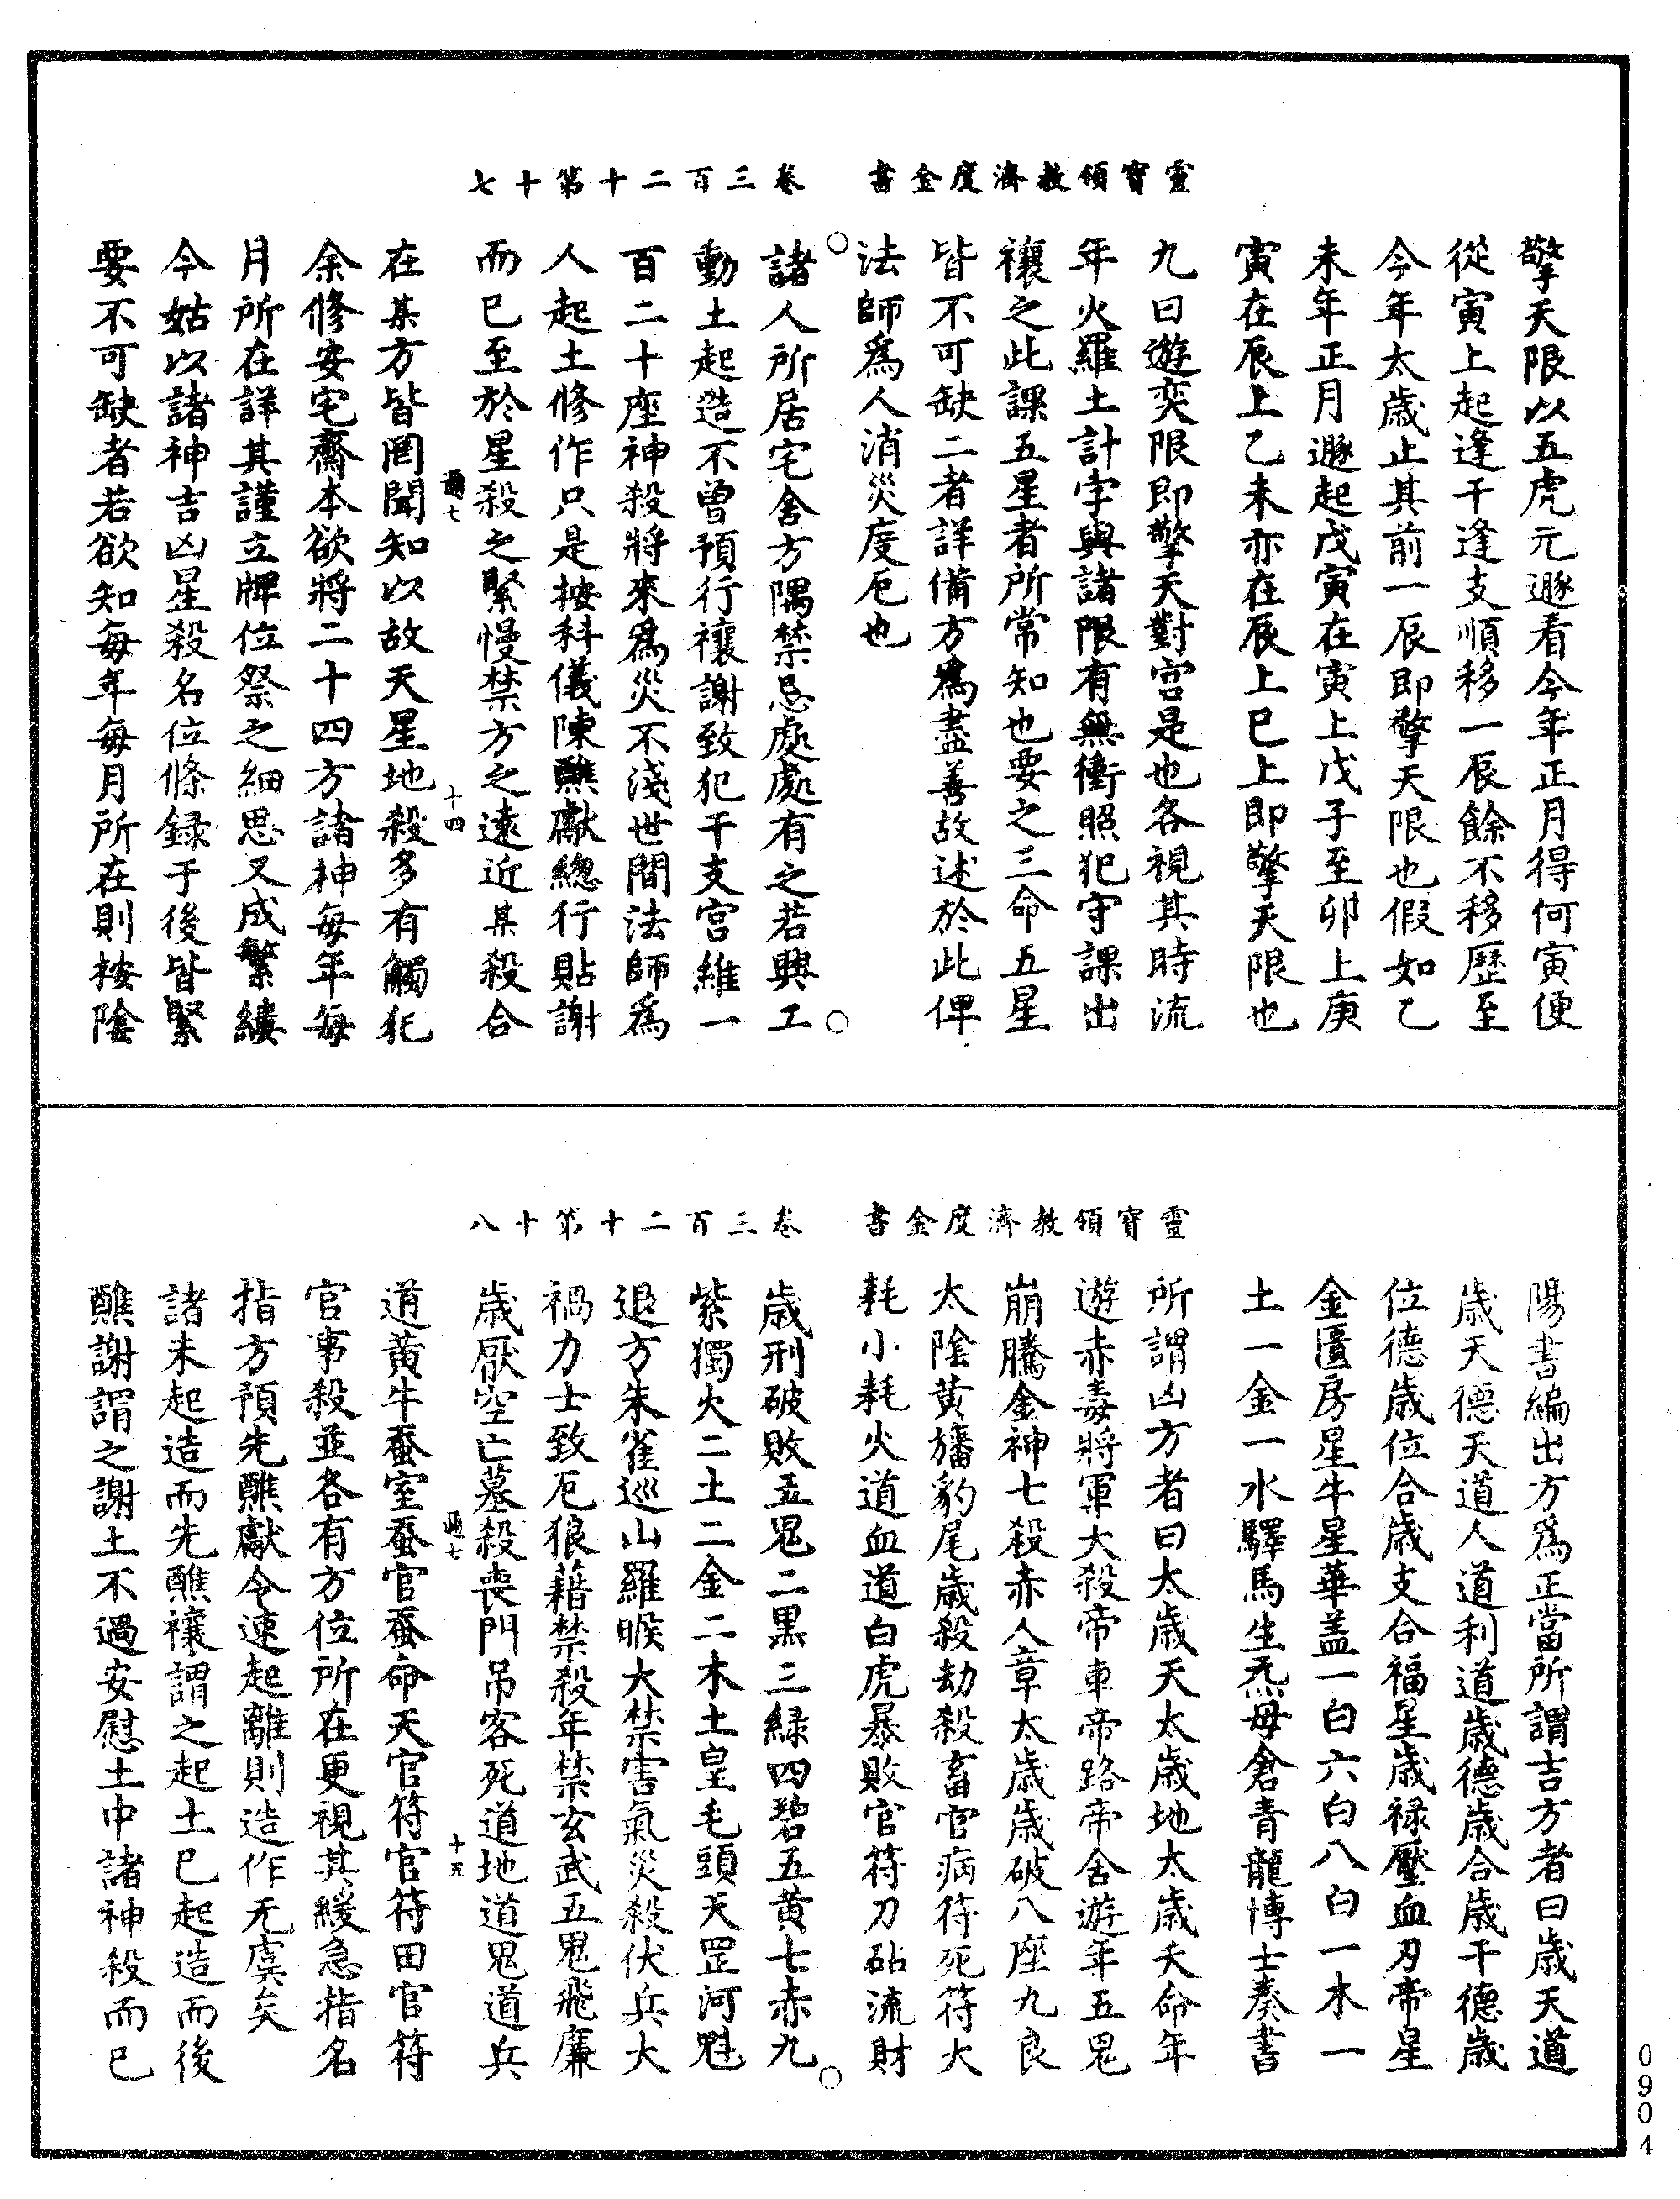 靈寶領教濟度金書
卷三百二十第十七
擎天限以五虎元遯看今年正月得何寅便
從寅上起逢干逢支順移一辰餘不移歷至
今年太歲止其前一辰即擎天限也假如乙
未年正月遯起戊寅在寅上戊子至卯上庚
寅在辰上乙未亦在辰上巳上即擎天限也
九曰遊奕限即擎天對宮是也各視其時流
年火羅土計孛與諸限有無衝照犯守課出
禳之此課五星者所常知也要之三命五星
皆不可缺二者詳備方爲盡善故述於此俾
法師爲人消災度厄也
諸人所居宅舍方隅禁忌處處有之若興工
動土起造不曾預行禳謝致犯干支宮維一
百二十座神殺將來爲災不淺世間法師爲
人起土修作只是按科儀陳醮獻總行貼謝
而已至於星殺之緊慢禁方之遠近某殺合
通七
十四
在某方皆罔聞知以故天星地殺多有觸犯
余修安宅齋本欲將二十四方諸神每年每
月所在詳其謹立牌位祭之細思又成繁縷
今姑以諸神吉凶星殺名位條録于後皆緊
要不可缺者若欲知每年每月所在則按陰
靈寶領教濟度金書
卷三百二十第十八
陽書編出方爲正當所謂吉方者曰歲天道
歲天德天道人道利道歲德歲合歲干德歲
位德歲位合歲支合福星歲禄壓血刃帝星
金匱房星牛星華盖一白六白八白一木一
土一金一水驛馬生炁母倉青龍博士奏書
所謂凶方者曰太歲天太歲地太歲夭命年
遊赤毒將軍大殺帝車帝路帝舍遊年五鬼
崩騰金神七殺赤人章太歲歲破八座九良
太陰黄旛豹尾歲殺劫殺畜官病符死符大
耗小耗火道血道白虎暴敗官符刀砧流財
歲刑破敗五鬼二黒三緑四碧五黄七赤九
紫獨火二土二金二木土皇毛頭天罡河魁
退方朱雀巡山羅睺大禁害氣災殺伏兵大
禍力士致厄狼藉禁殺年禁玄武五鬼飛廉
歲厭空亡墓殺喪門吊客死道地道鬼道兵
通七
十五
道黄牛蚕室蚕官蚕命天官符官符田官符
官事殺並各有方位所在更視其緩急指名
指方預先醮獻令速起離則造作无虞矣
諸未起造而先醮禳謂之起土巳起造而後
醮謝謂之謝土不過安慰土中諸神殺而巳
0904